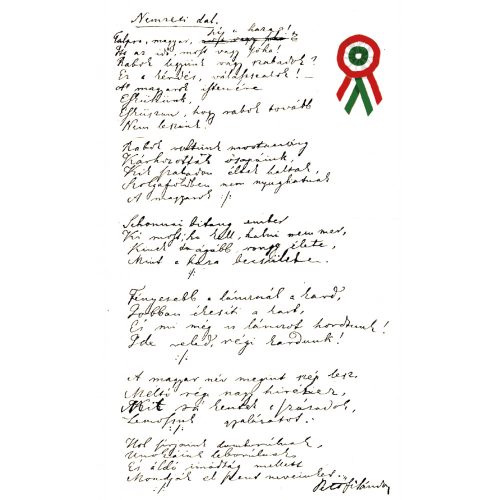 Nemzeti dal.
Talpra, magyar, hí a haza!
Itt az idő, most vagy soha!
Rabok legyünk vagy szabadok?
Ez a kérdés, válasszatok! –
A magyarok istenére
Esküszünk,
Esküszünk, hogy rabok tovább
Nem leszünk!
Rabok voltunk mostanáig
Kárhozottak ősapáink,
Kik szabadon éltek haltak,
Szolgaföldben nem nyughatnak
A magyarok :/:
Sehonnai bitang ember
Ki most, ha kell, halni nem mer,
Kinek drágább rongy élete,
Mint a haza becsülete.
:/:
Fényesebb a láncznál a kard,
Jobban ékesíti a kart,
És mi még is lánczot hordtunk!
Ide veled, régi kardunk!
:/:
A magyar név megint szép lesz,
Méltó régi nagy hiréhez,
Mit rá kentek a századok,
Lemossuk gyalázatot.
:/:
Hol sirjaink domborulnak,
Unokáink leborulnak,
És áldó imádság mellett
Mondják el szent neveinket.
Petőfi Sándor